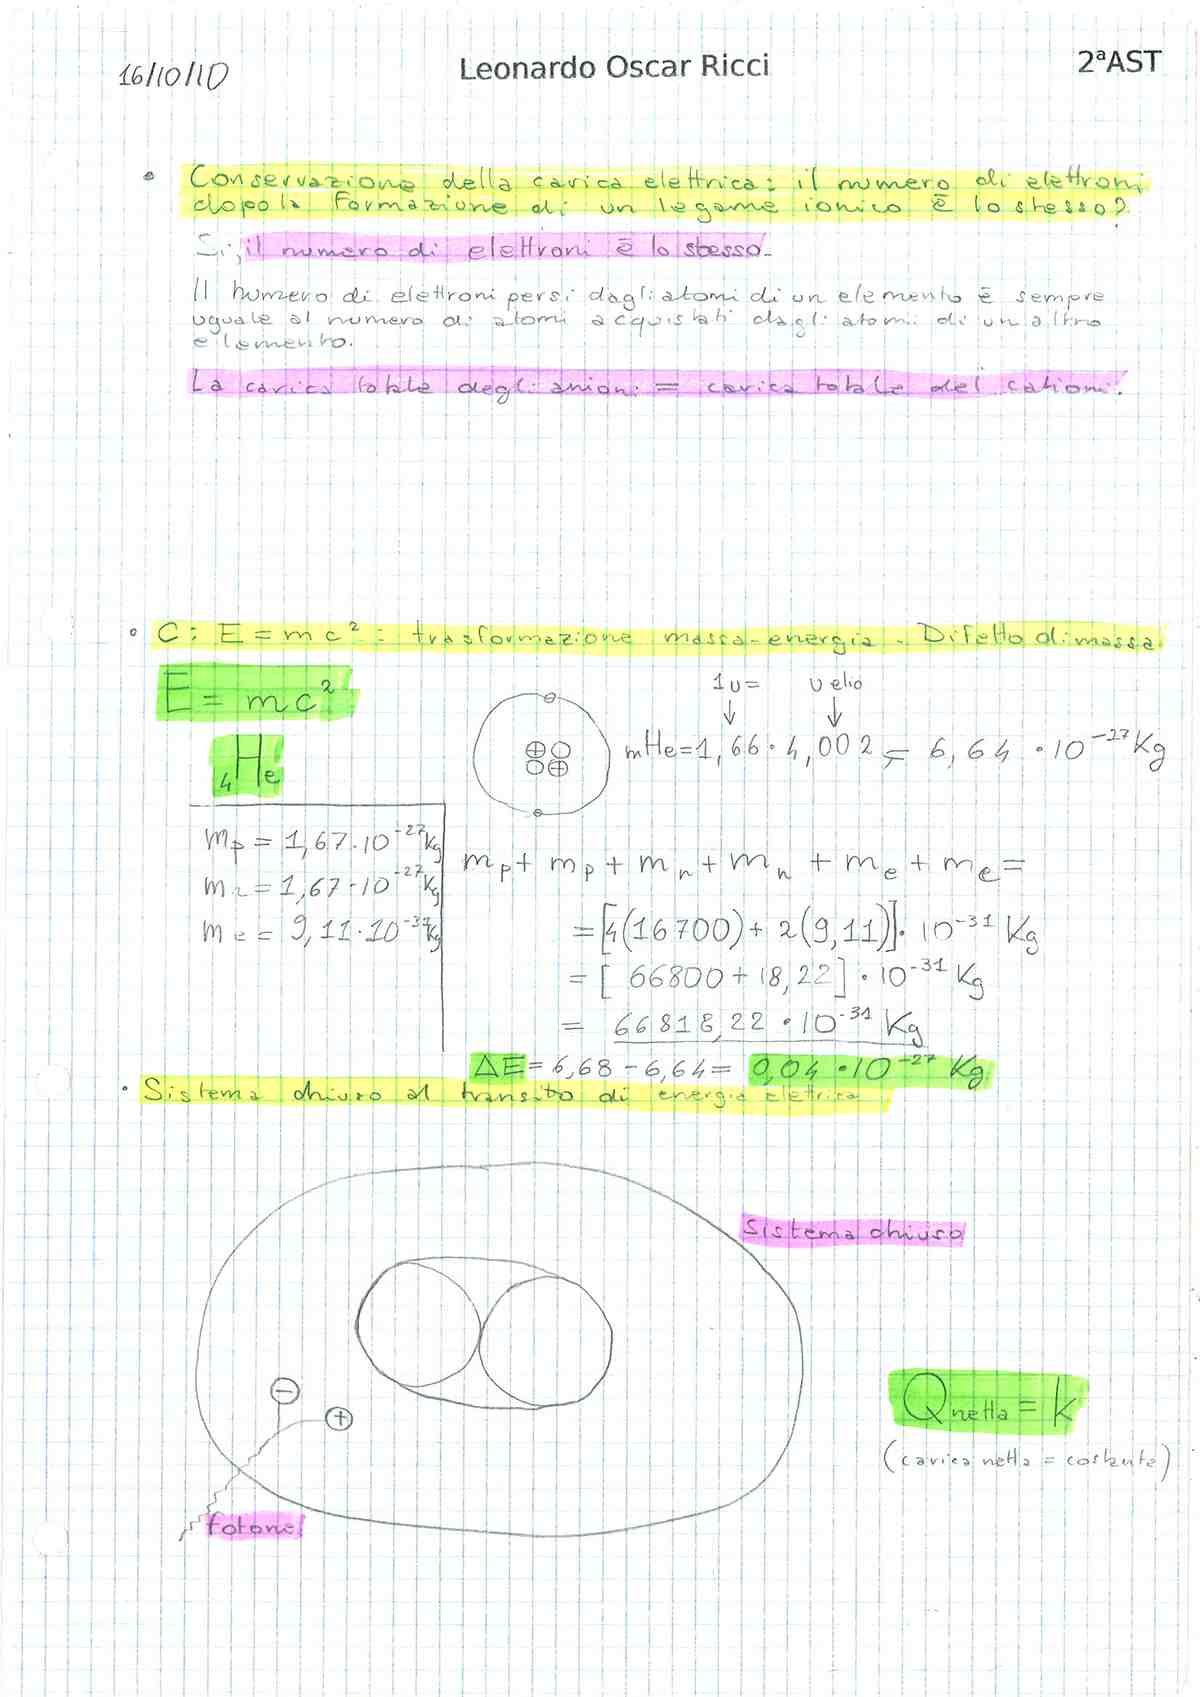 16/10/10 Leonardo Oscar Ricci 2ªAST
Conservazione della carica elettrica: il numero di elettroni
dopo la formazione di un legame ionico è lo stesso?
Si, il numero di elettroni è lo stesso.
Il numero di elettroni persi dagli atomi di un elemento è sempre
uguale al numero di atomi acquistati dagli atomi di un altro
elemento.
La carica totale degli anioni = carica totale dei cationi.
C: E = mc² : trasformazione massa-energia - Difetto di massa
E = mc²
1u= u elio
↓ ↓
₄He
mHe=1,66 · 4,002 = 6,64 · 10⁻²⁷ Kg
mp = 1,67 · 10⁻²⁷ Kg
mn = 1,67 · 10⁻²⁷ Kg
me = 9,11 · 10⁻³¹ Kg
mp + mp + mn + mn + me + me =
= [4(16700) + 2(9,11)] · 10⁻³¹ Kg
= [66800 + 18,22] · 10⁻³¹ Kg
= 66818,22 · 10⁻³¹ Kg
ΔE = 6,68 - 6,64 = 0,04 · 10⁻²⁷ Kg
Sistema chiuso al transito di energia elettrica
Sistema chiuso
−
+
Qnetta = k
(carica netta = costante)
fotone